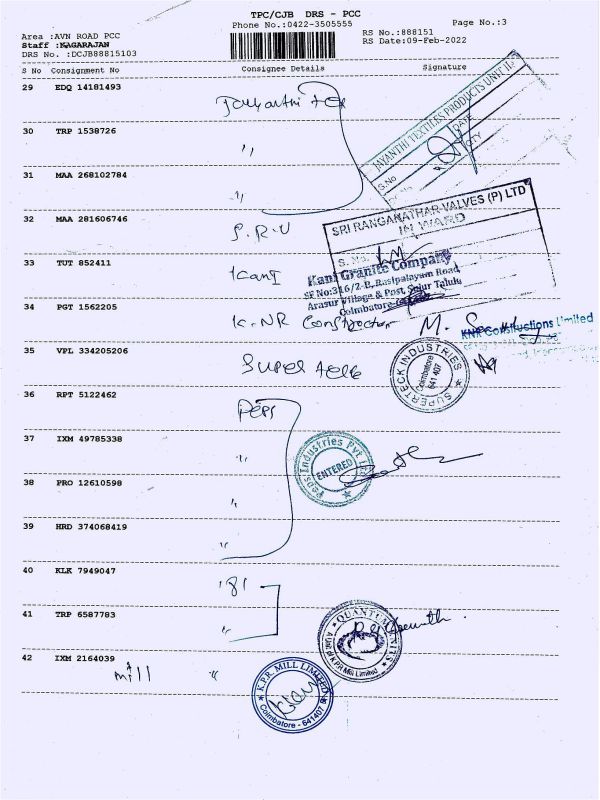 TPC/CJB DRS - PCC
Phone No.:0422-3505555
Page No.:3
Area :AVN ROAD PCC
RS No.:888151
Staff :KAGARAJAN
RS Date:09-Feb-2022
DRS No. :DCJB88815103
S No Consignment No Consignee Details Signature
29 EDQ 14181493 Jayanthi Tex
JAYANTHI TEXTILES PRODUCTS UNIT II
S.No DATE
QTY
30 TRP 1538726 "
31 MAA 268102784 "
32 MAA 281606746 S.R.V
SRI RANGANATHAR VALVES (P) LTD
IN WARD
S. No.
33 TUT 852411 Kani
Kani Granite Company
SF No:316/2-B, Rasipalayam Road,
Arasur Village & Post, Sulur Taluk
Coimbatore
34 PGT 1562205 K.NR Construction M.
KNR Constructions Limited
35 VPL 334205206 Super teck
SUPERTECK INDUSTRIES
Coimbatore
641 407
36 RPT 5122462 PEPS
37 IXM 49785338 "
Peps Industries Pvt Ltd
ENTERED
38 PRO 12610598 "
39 HRD 374068419 "
40 KLK 7949047 '81
41 TRP 6587783 "
QUANTUM KNITS
A Unit of K.P.R. Mill Limited
42 IXM 2164039 "
mill
K.P.R. MILL LIMITED
Coimbatore - 641407